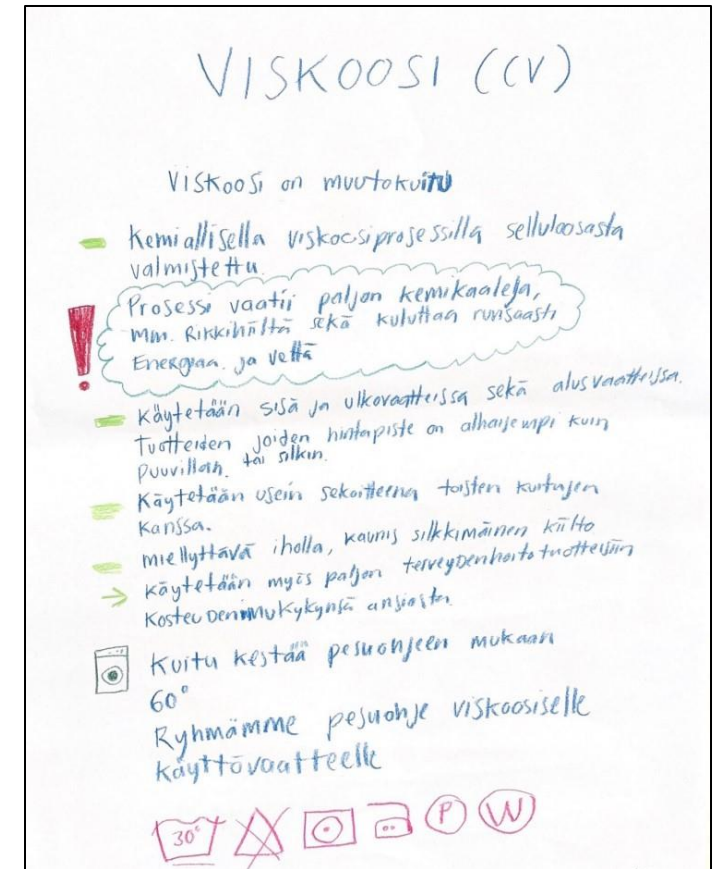 VISKOOSI (CV)
VISKOOSI on muutokuitu
Kemiallisella viskoosiprosessilla selluloosasta
valmistettu.
Prosessi vaatii paljon kemikaaleja,
mm. Rikkihiiltä sekä kuluttaa runsaasti
Energiaa. ja vettä
Käytetään sisä ja ulkovaatteissa sekä alusvaatteissa.
Tuotteiden joiden hintapiste on alhaisempi kuin
puuvillan. tai silkin.
Käytetään usein sekoitteena toisten kuitujen
kanssa.
miellyttävä iholla, kaunis silkkimäinen kiilto
käytetään myös paljon terveydenhoitotuotteisiin
Kosteudenimukykynsä ansiosta.
Kuitu kestää pesuohjeen mukaan
60°
Ryhmämme pesuohje viskoosiselle
käyttövaatteelle
30° P W